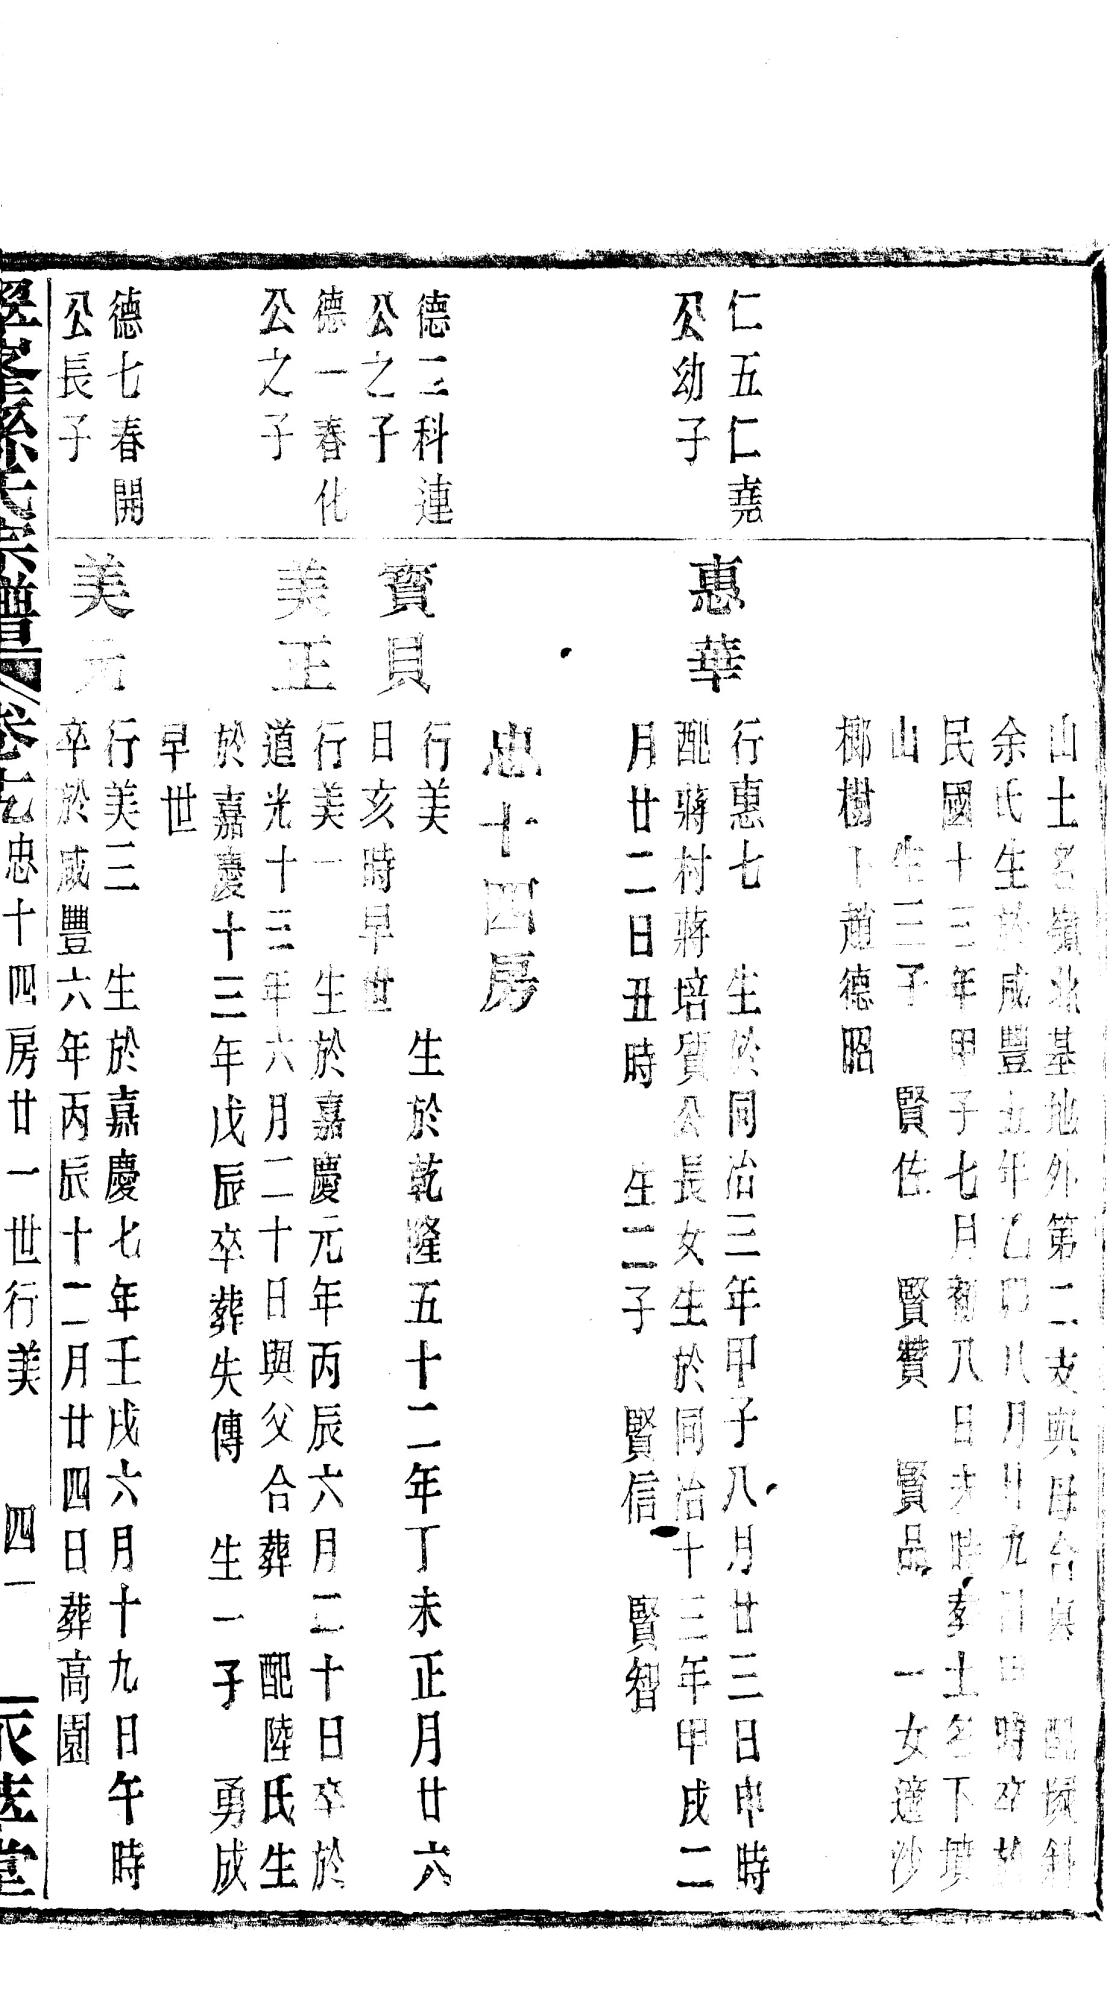 山土名嶺北基地外第二支與母合真 配 斜
余氏生於咸豐五年乙卯八月廿九日申時卒於
民國十三年甲子七月初八日未時葬土名下墳
山 生三子 賢佐 賢贊 賢品 一女適沙
挪樹下趙德昭
仁五仁堯
公幼子
惠華
行惠七 生於同治三年甲子八月廿三日申時
配蔣村蔣培質公長女生於同治十三年甲戌二
月廿二日丑時 生二子 賢信 賢智
忠十四房
德二科連
公之子
寶貝
行美 生於乾隆五十二年丁未正月廿六
日亥時早世
德一春化
公之子
美正
行美一 生於嘉慶元年丙辰六月二十日卒於
道光十三年六月二十日與父合葬 配陸氏生
於嘉慶十三年戊辰卒葬失傳 生一子 勇成
早世
德七春開
公長子
美元
行美三 生於嘉慶七年壬戌六月十九日午時
卒於咸豐六年丙辰十二月廿四日葬高園
孫氏宗譜 卷 忠十四房廿一世行美 四一 堂